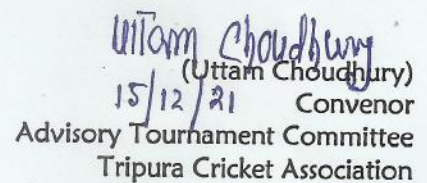 Uttam Choudhury
(Uttam Choudhury)
15/12/21 Convenor
Advisory Tournament Committee
Tripura Cricket Association